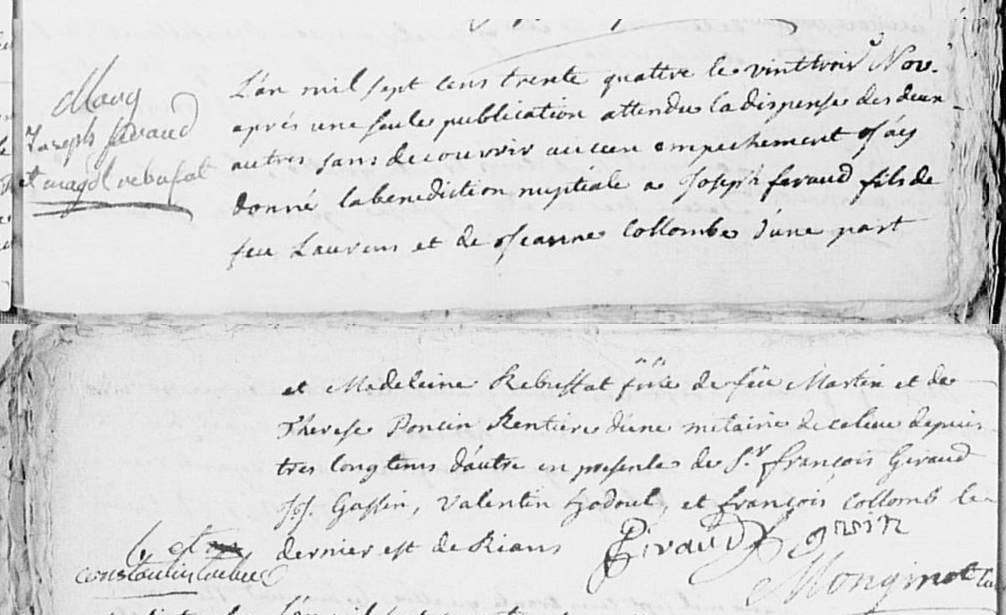 Mariag
Joseph feraud
et magdl rebufat
L'an mil sept cens trente quattre le vint trois Nov.
aprés une seule publication attendu la dispense des deux
autres sans decouvrir aucun empechement J'ay
donné la benediction nuptiale a Joseph feraud fils de
feu Laurens et de Jeanne Collombe d'une part
et Madeleine Rebuffat fille de feu Martin et de
Therese Poncin Rentiere d'une metairie de ce lieu depuis
tres longtems d'autre en presence de Sr. françois Giraud
Jos. Gassin, Valentin hodoul, et françois Collomb le
dernier est de Rians Giraud gassin
b et